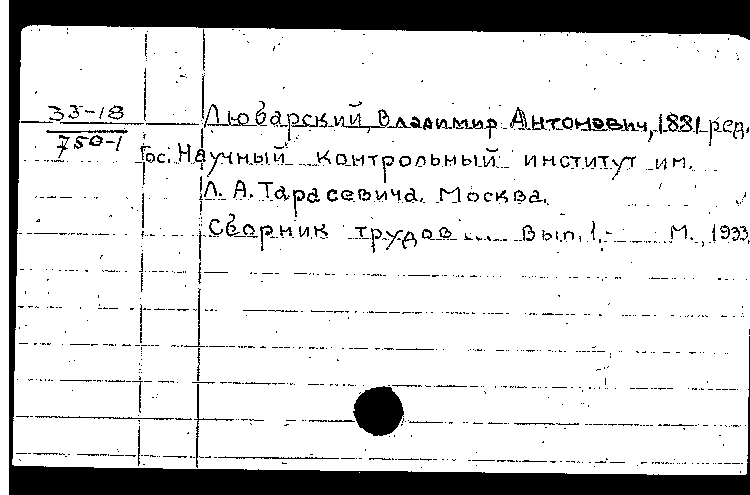 33-18
750-1
Любарский, Владимир Антонович, 1881 ред.
Гос. Научный контрольный институт им.
Л. А. Тарасевича. Москва.
Сборник трудов... Вып. 1.- М., 1933.